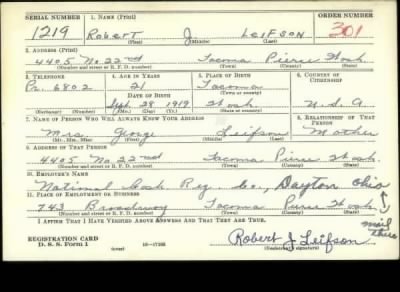 SERIAL NUMBER 1. NAME (Print) ORDER NUMBER
1219 Robert J LEIFSON 301
(First) (Middle) (Last)
2. ADDRESS (Print)
4405 No. 22nd Tacoma Pierce Wash.
(Number and street or R. F. D. number) (Town) (County) (State)
3. TELEPHONE 4. AGE IN YEARS 5. PLACE OF BIRTH 6. COUNTRY OF CITIZENSHIP
Pr. 6802 21 Tacoma
DATE OF BIRTH (Town or county)
Sept. 28 1919 Wash. U.S.A.
(Exchange) (Number) (Mo.) (Day) (Yr.) (State or country)
7. NAME OF PERSON WHO WILL ALWAYS KNOW YOUR ADDRESS 8. RELATIONSHIP OF THAT PERSON
Mrs. George Leifson Mother
(Mr., Mrs., Miss) (First) (Middle) (Last)
9. ADDRESS OF THAT PERSON
4405 No 22nd Tacoma Pierce Wash.
(Number and street or R. F. D. number) (Town) (County) (State)
10. EMPLOYER'S NAME
National Cash Reg. Co., Dayton Ohio
11. PLACE OF EMPLOYMENT OR BUSINESS
743 Broadway Tacoma Pierce Wash.
(Number and street or R. F. D. number) (Town) (County) (State)
mail
I AFFIRM THAT I HAVE VERIFIED ABOVE ANSWERS AND THAT THEY ARE TRUE.
REGISTRATION CARD
D. S. S. Form 1 (over) Robert J. Leifson
(Registrant's signature)